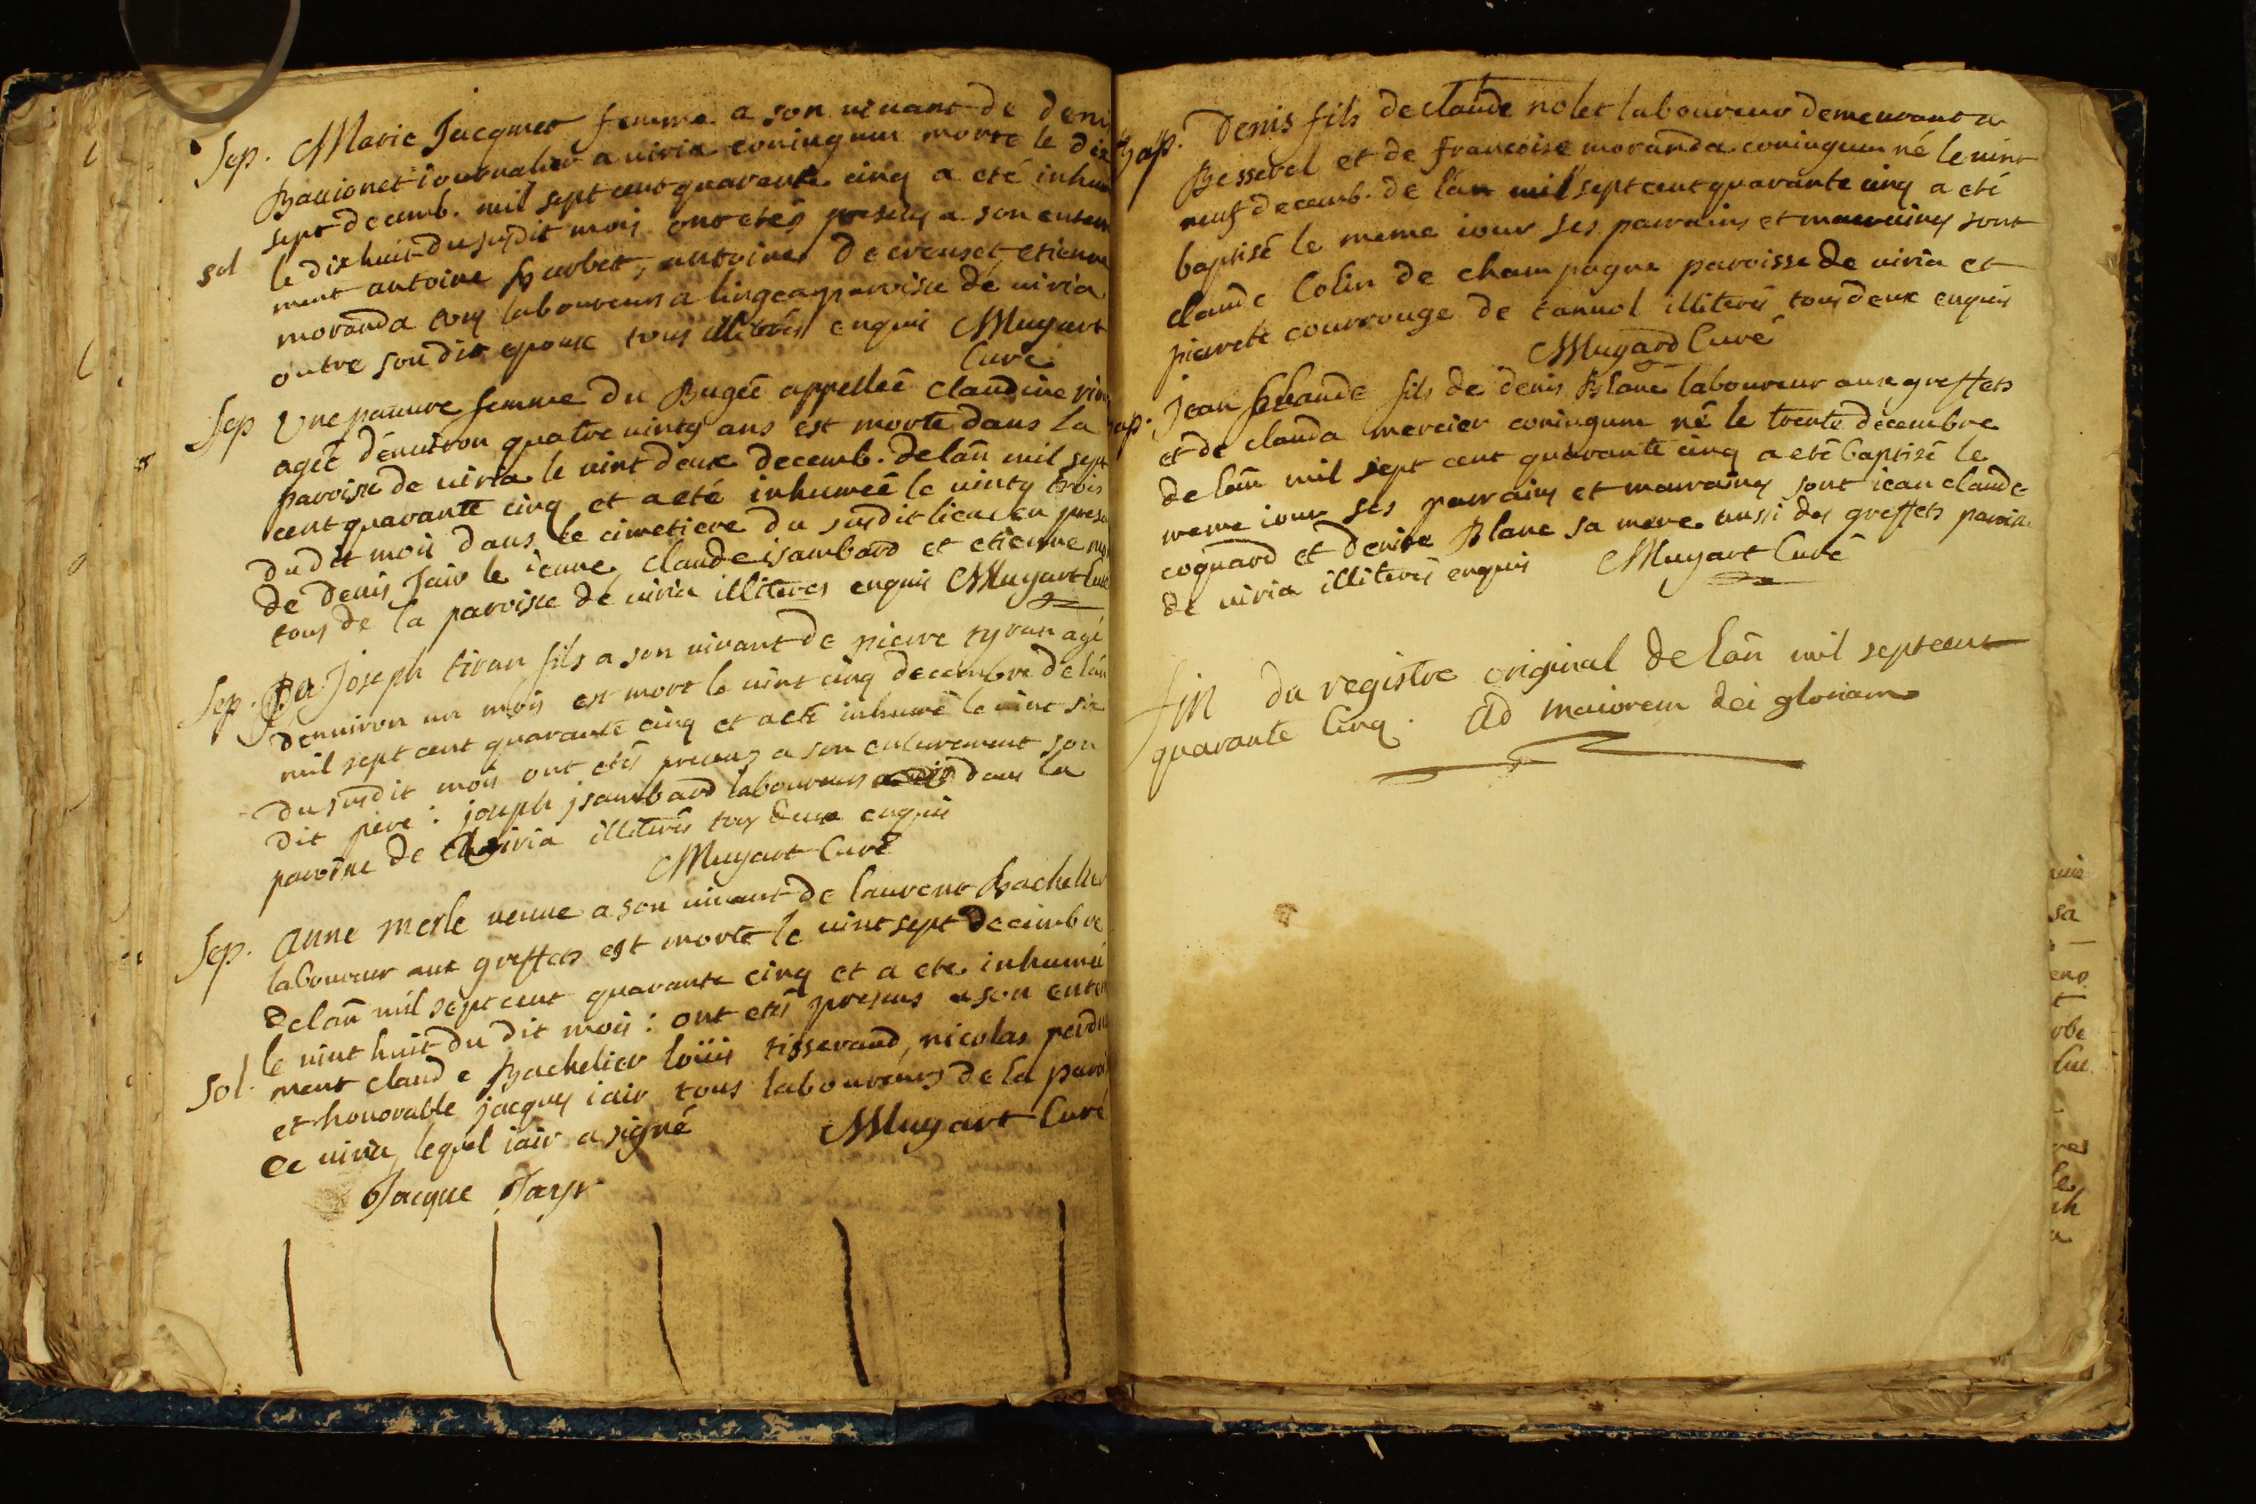 Sep. Marie Jacquet femme a son vivant de deni
Bavionet iournalier a viria coniugum morte le dix
sept decemb. mil sept cent quarante cinq a eté inhu
sol le dixhuit du susdit mois ont etés presens a son enterre
ment antoine Barbet, antoine decreuset, etienne
moranda tous laboureurs a lingeat paroisse de viria
outre son dit epoux tous illiterés enquis Muyart
Curé
Sep Une pauvre femme du Bugëe appelleé Claudine
ageé d'environ quatre vints ans est morte dans La
paroisse de viria le vint deux decemb. de lan mil sept
cent quarante cinq et a eté inhumeé le vints trois
du dit mois dans le cimetiere du susdit lieu en prese
de denis Jair le ieune, claude isambard et etienne
tous de la paroisse de viria illiteres enquis Muyart Curé
Sep. Joseph tiran fils a son vivant de pierre tyran agé
denviron un mois est mort le vint cinq decembre de lan
mil sept cent quarante cinq et a eté inhumé le vint six
du susdit mois ont etés presens a son enterement son
dit pere : joseph jsambard laboureurs dans la
paroisse de viria illiterés tous deux enquis
Muyart Curé
Sep. anne merle veuve a son vivant de laurent Bachelier
laboureur aux greffets est morte le vint sept decembre
de lan mil sept cent quarante cinq et a ete inhumé
le vint huit du dit mois : ont etés presens a son enter
Sol. ment claude Bachelier loüis tisserand, nicolas
et honorable jacques iair tous laboureurs de la paroi
de viria, lequel iair a signé Muyart Curé
Jacque Jayr
Bap. Denis fils de claude nolet laboureur demeurant a
Besserel et de francoise moranda coniugum né le vint
neuf decemb. de lan mil sept cent quarante cinq a eté
baptisé le meme iour ses parrains et marraines sont
claude Colin de champagne paroisse de viria et
pierrete courrouge de tannol illiterés tous deux enquis
Muyard Curé
ap. jean claude fils de denis Blanc laboureur aux greffets
et de clauda mercier coniugum né le trente decembre
de lan mil sept cent quarante cinq a eté baptisé le
meme iour ses parrains et marraines sont iean claude
coquard et denise Blanc sa mere aussi des greffets paroisse
de viria illiterés enquis Muyart Curé
fin du registre original de lan mil septcent
quarante Cinq. Ad maiorem dei gloriam